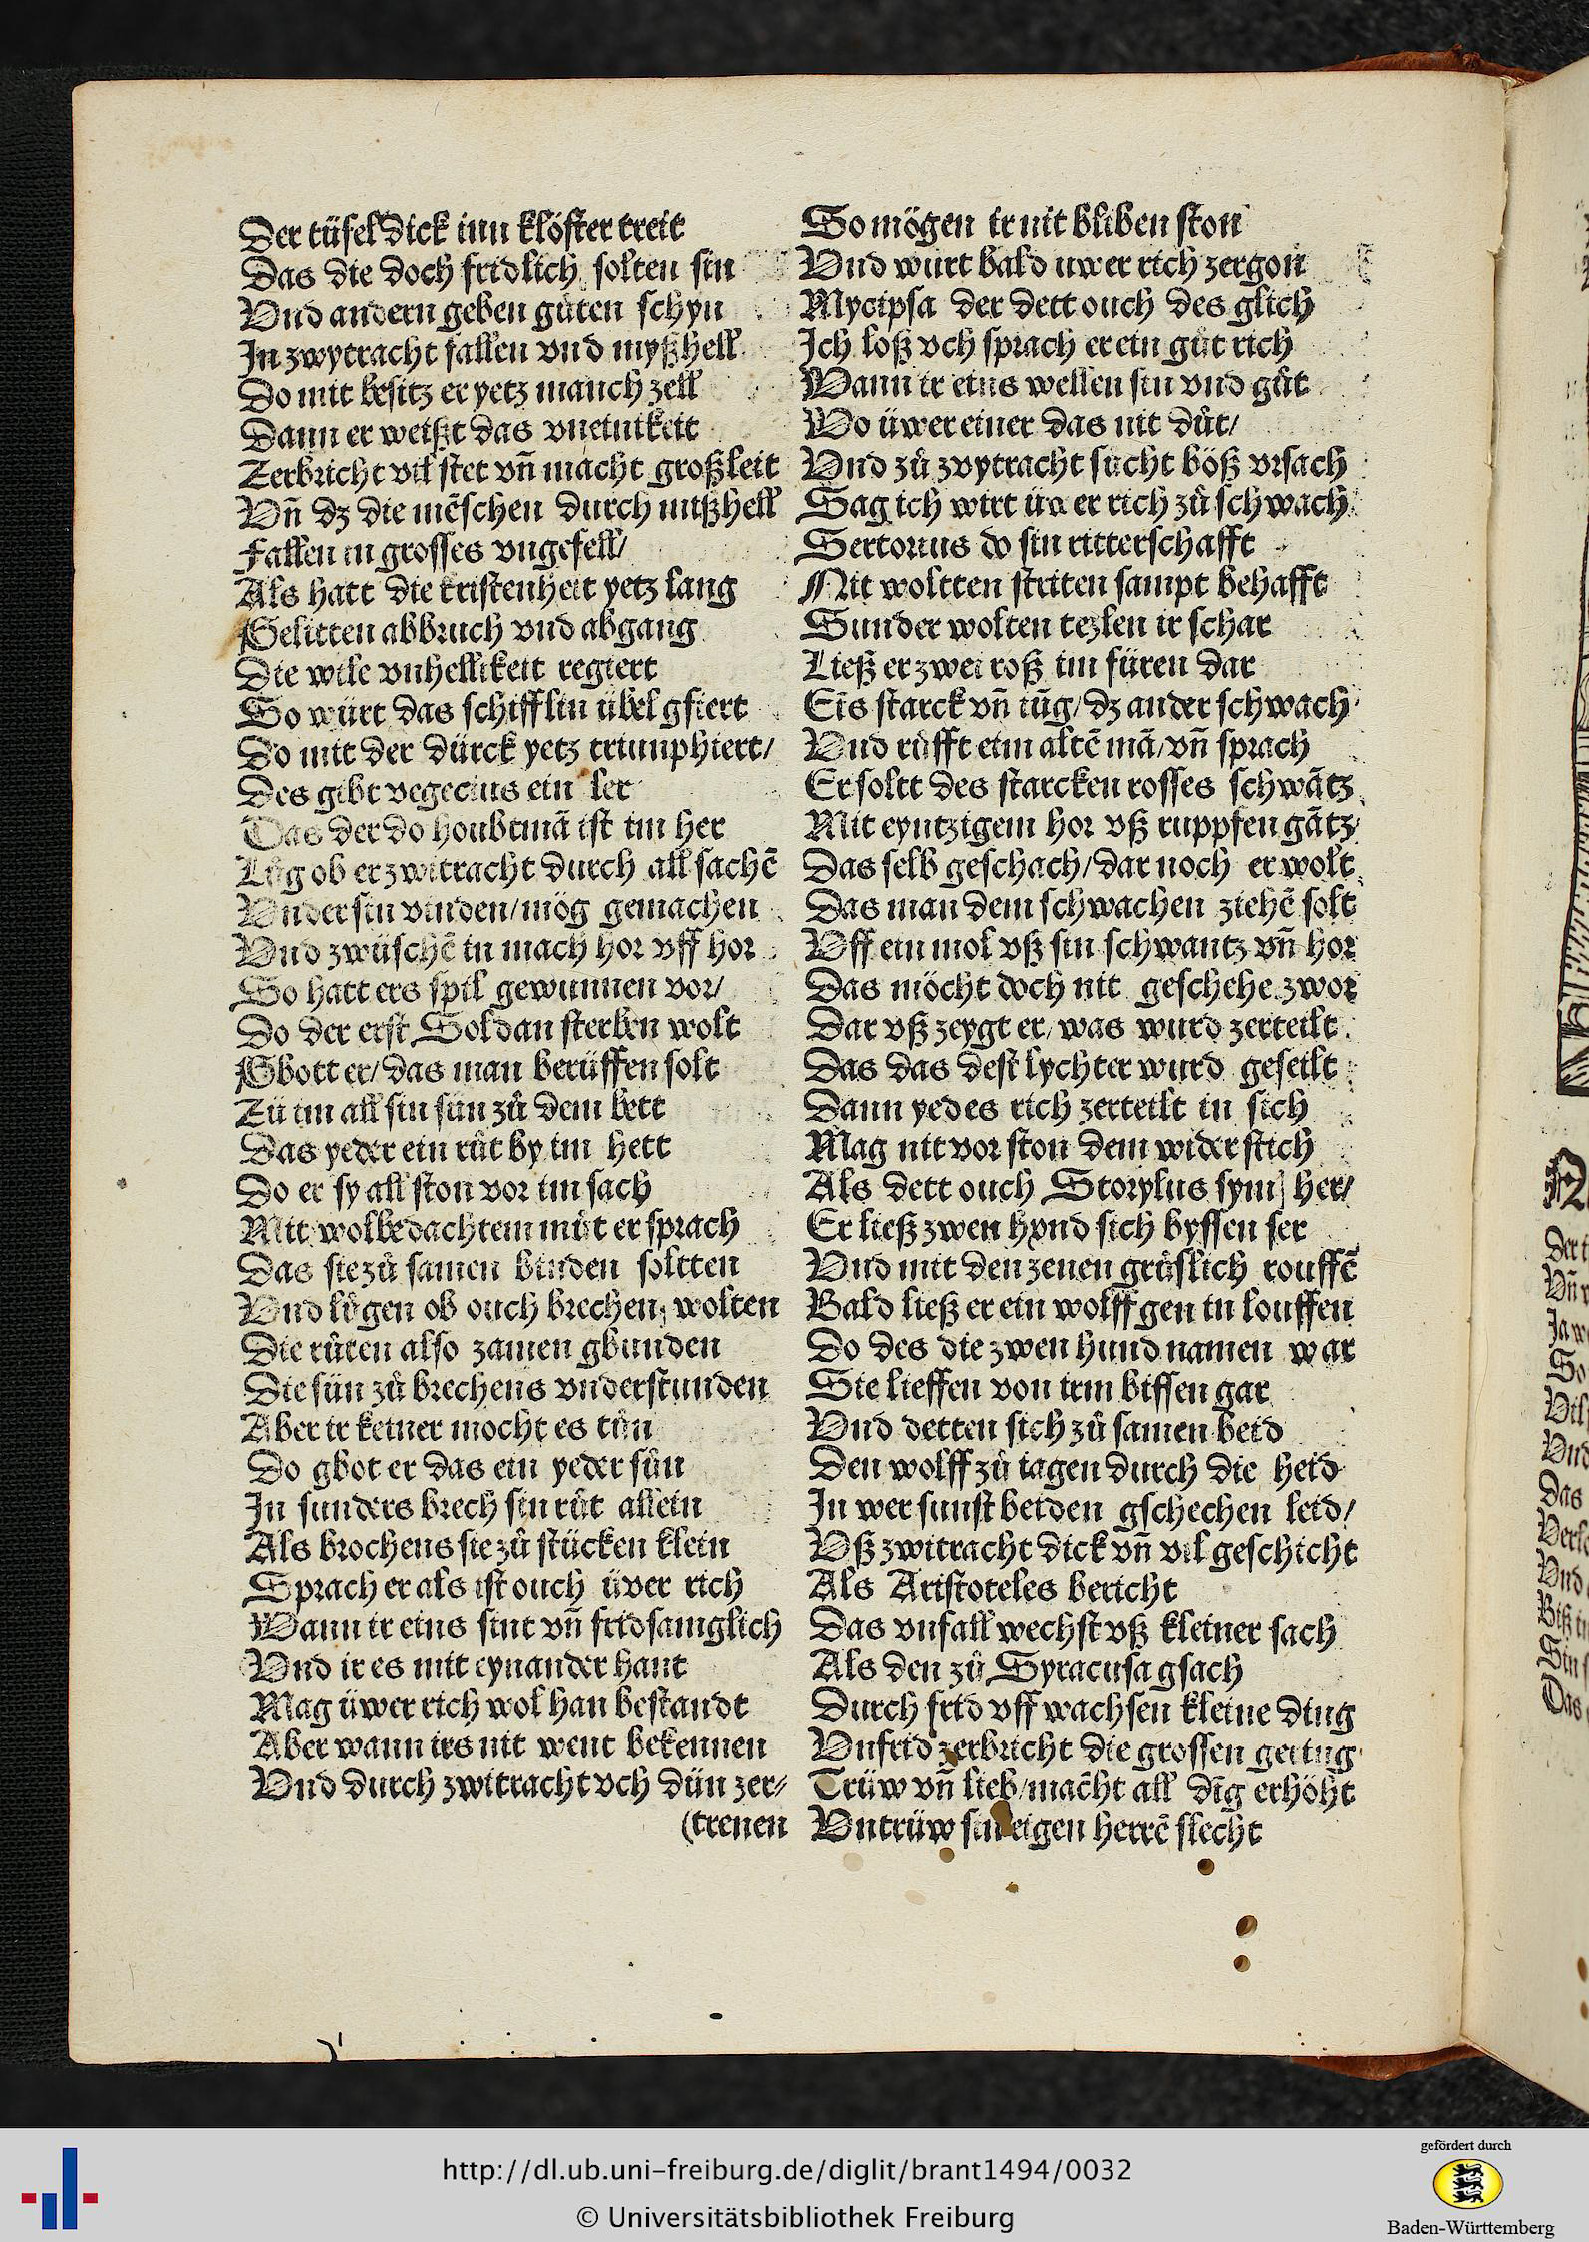 Der tüfel dick inn klöster treit
Das die doch fridlich solten sin
Vnd andern geben gůten schyn
In zwytracht fallen vnd myßhell
Do mit besitz er yetz manch zell
Dann er weißt das vneinikeit
Zerbricht vil stet vn̄ macht groß leit
Vn̄ dz die mēschen durch mißhell
Fallen in grosses vngefell/
Als hatt die cristenheit yetz lang
Gelitten abbruch vnd abgang
Die wile vnhellikeit regiert
So würt das schifflin übel gfiert
Do mit der dürck yetz triumphiert/
Des gibt vegecius ein ler
Das der do houbtmā ist im her
Lůg ob er zwitracht durch all sachē
Vnder sin vinden/mög gemachen
Vnd zwüschē in mach hor vff hor
So hatt ers spil gewunnen vor/
Do der erst Soldan sterben wolt
Gbott er/das man berüffen solt
Zü im all sin sün zů dem bett
Das yeder ein růt by im hett
Do er sy all ston vor im sach
Mit wolbedachtem můt er sprach
Das sie zů samen binden soltten
Vnd lůgen ob ouch brechen wolten
Die růten also zamen gbunden
Die sün zů brechens vnderstunden
Aber ir keiner mocht es tůn
Do gbot er das ein yeder sůn
In sunders brech sin růt allein
Als brochens sie zů stücken klein
Sprach er als ist ouch üver rich
Wann ir eins sint vn̄ fridsamglich
Vnd ir es mit eynander hant
Mag üwer rich wol han bestandt
Aber wann irs nit went bekennen
Vnd durch zwitracht vch dün zer⸗
(trenen
So mögen ir nit bliben ston
Vnd wurt bald uwer rich zergon
Mycipsa der dett ouch des glich
Ich loß vch sprach er ein gůt rich
Wann ir eins wellen sin vnd gůt
Wo üwer einer das nit důt/
Vnd zů zvytracht sůcht böß vrsach
Sag ich wirt üw er rich zů schwach
Sertorius do sin ritterschafft
Nit woltten striten sampt behafft
Sunder wolten teylen ir schar
Ließ er zwei roß im füren dar
Eīs starck vn̄ iūg/dz ander schwach
Vnd růfft eim altē mā/vn̄ sprach
Er soltt des starcken rosses schwātz
Mit eyntzigem hor vß ruppfen gātz
Das selb geschach/dar noch er wolt
Das man dem schwachen ziehē solt
Vff ein mol vß sin schwantz vn̄ hor
Das möcht doch nit geschehe zwor
Dar vß zeygt er/was wurd zerteilt
Das das dest lychter wurd geseilt
Dann yedes rich zerteilt in sich
Mag nit vor ston dem widerstich
Als dett ouch Storylus sym her/
Er ließ zwen hynd sich byssen ser
Vnd mit den zenen grüslich rouffē
Bald ließ er ein wolff gen in louffen
Do des die zwen hund namen war
Sie lieffen von irm bissen gar
Vnd detten sich zů samen beid
Den wolff zů iagen durch die heid
In wer sunst beiden gschechen leid/
Vß zwitracht dick vn̄ vil geschicht
Als Aristoteles bericht
Das vnfall wechst vß kleiner sach
Als den zů Syracusa gsach
Durch frid vff wachsen kleine ding
Vnfrid zerbricht die grossen gering
Trüw vn̄ lieb/macht all dīg erhöht
Vntrüw sin eigen herrē slecht
http://dl.ub.uni-freiburg.de/diglit/brant1494/0032
© Universitätsbibliothek Freiburg
gefördert durch
Baden-Württemberg